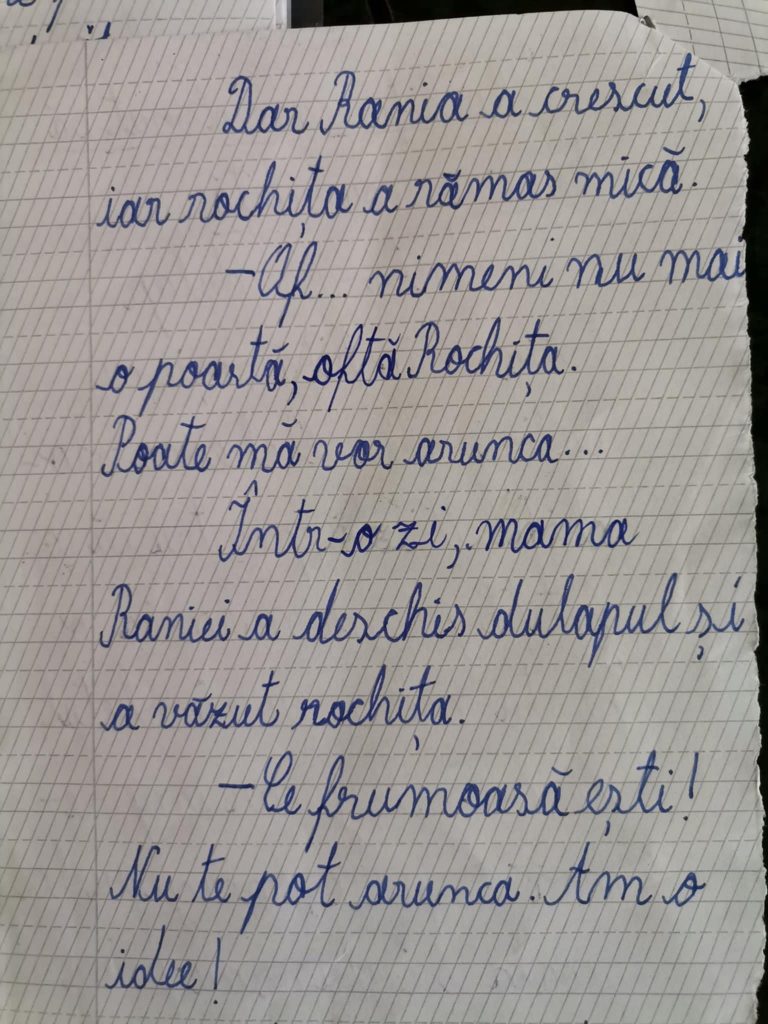 Dar Rania a crescut,
iar rochița a rămas mică.
-Of... nimeni nu mai
o poartă, oftă Rochița.
Poate mă vor arunca...
Într-o zi, mama
Raniei a deschis dulapul și
a văzut rochița.
-Ce frumoasă ești!
Nu te pot arunca. Am o
idee!